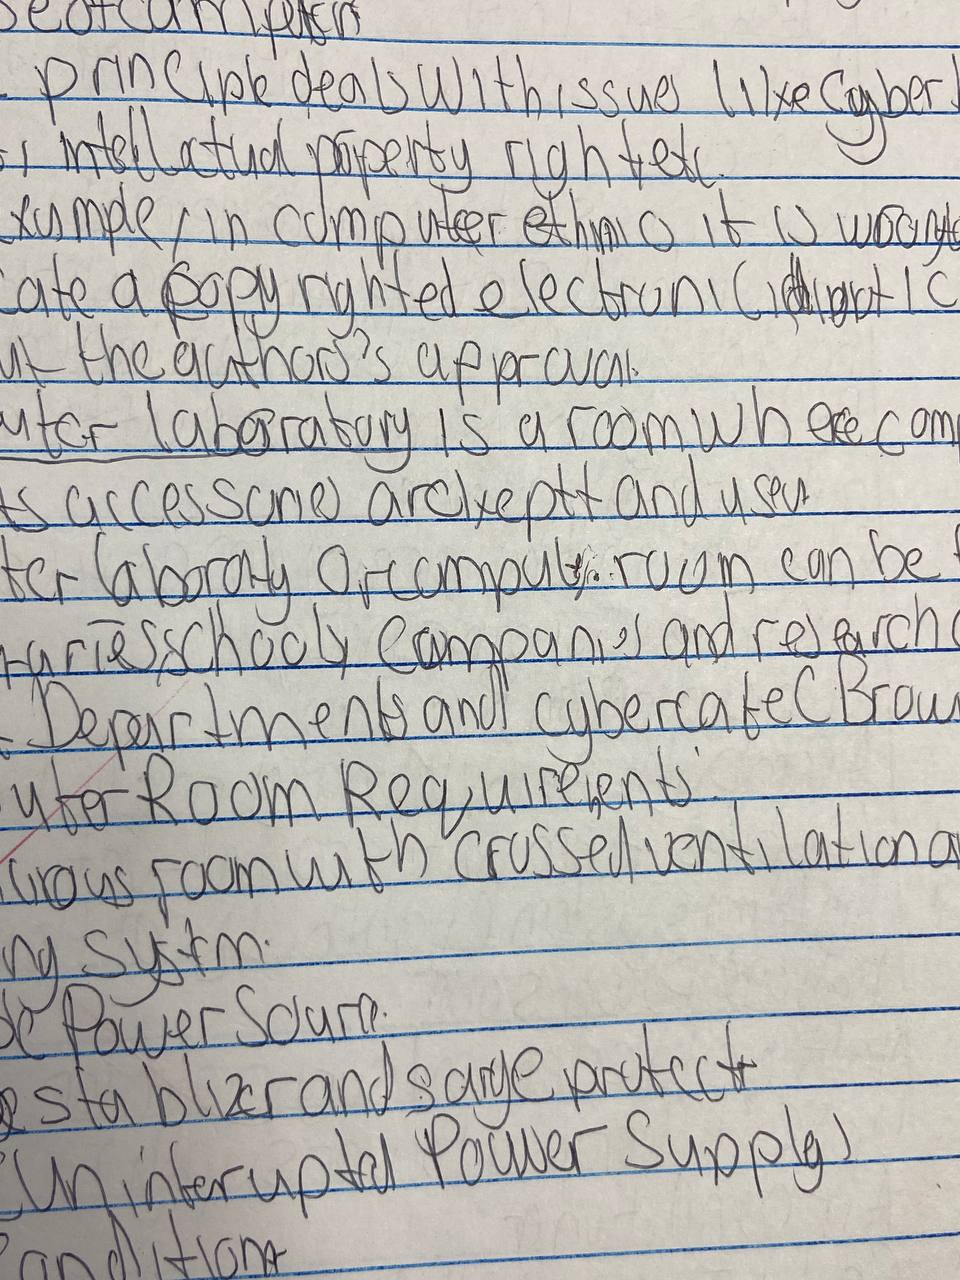 principle deals with issues like Cyber
intellactual property right etc.
xample, in computer ethnics it is wrong
cate a copyrighted electronic
ut the author's approval.
uter laboratory is a room where com
ts accessories are kept and used
ter laboratory or computer room can be
schools companies and research
Departments and cybercafe (Brow
uter Room Requirements
room with crossed ventilation a
ng system.
Power Source.
stablizer and sarge protect
Uninterupted Power Supply)
condition